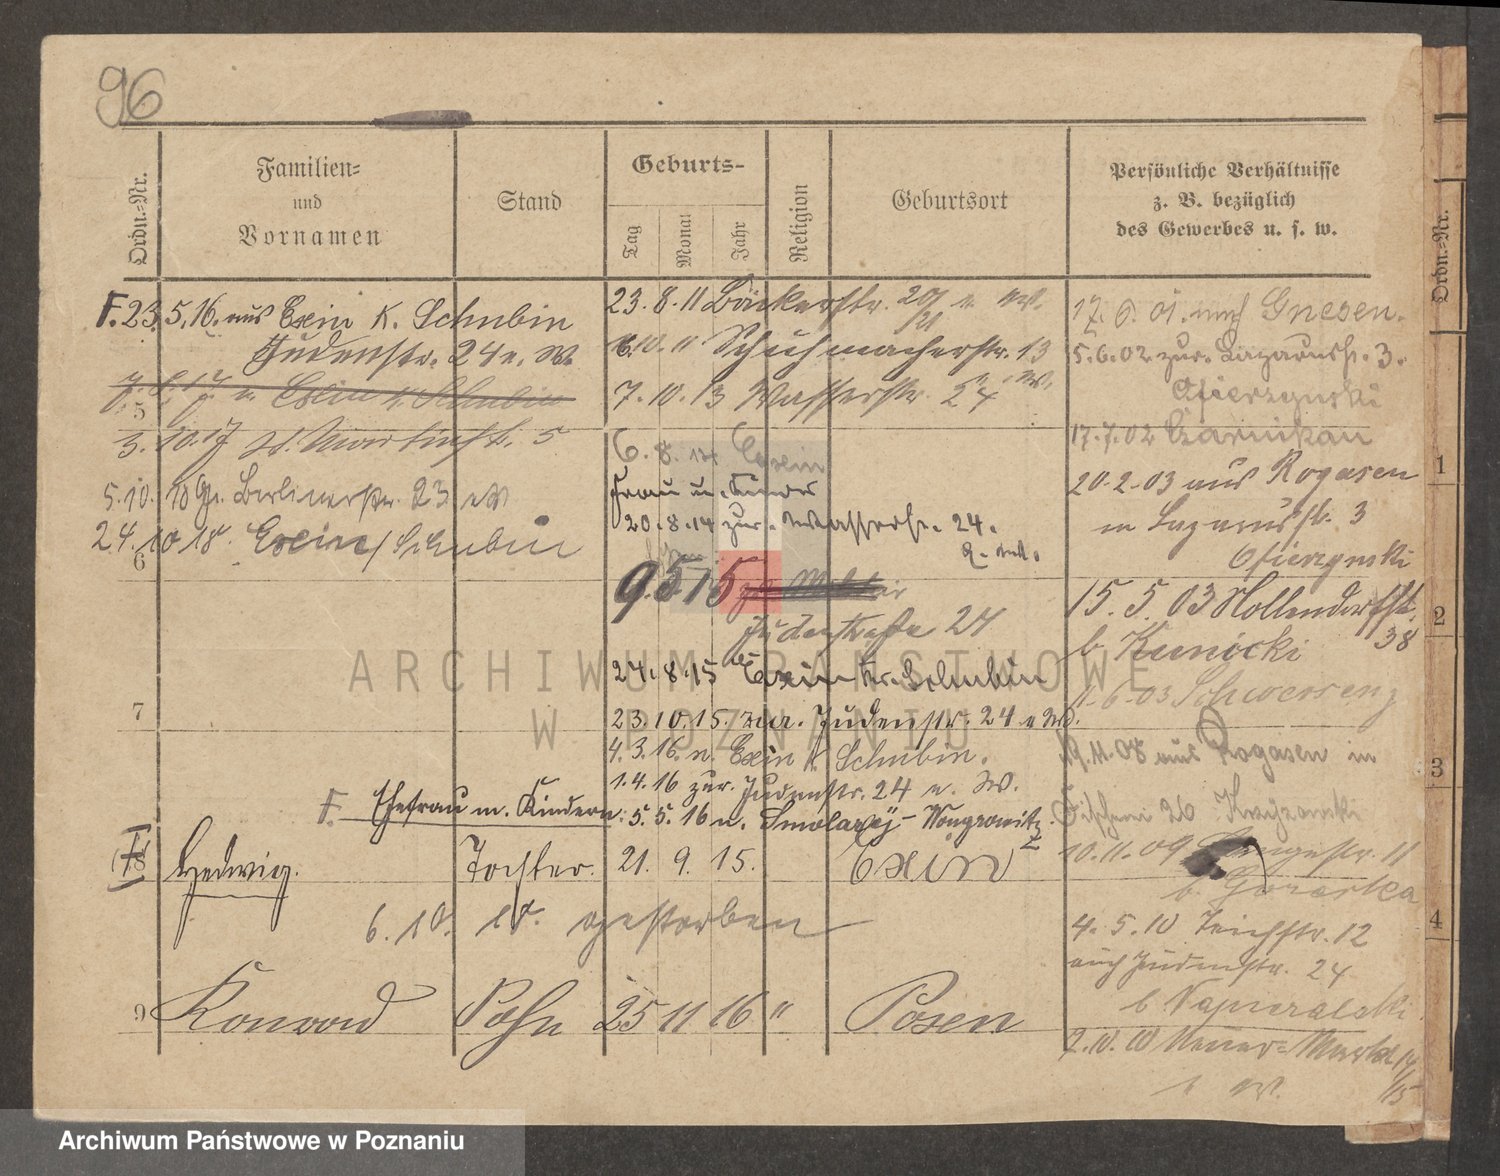 96
Ordn.-Nr.
Familien-
und
Vornamen
Stand
Geburts-
Tag
Monat
Jahr
Religion
Geburtsort
Persönliche Verhältnisse
z. B. bezüglich
des Gewerbes u. s. w.
Ordn.-Nr.
F. 23.5.16. aus Exin K. Schubin
Judenstr. 24 e. W.
7. 17 n. Exin K. Schubin
5
3.10.17 St. Martinstr. 5
5.10. 18 Gr. Berlinerstr. 23
24.10 18. Exin / Schubin
6
7
23.8.11 Bäckerstr. 20/21
6.10.11 Schuhmacherstr. 13
7.10.13 Wasserstr. 24
6.8. Exin
Frau u. Kinder
20.8.14 zur. Wasserstr. 24.
9.5.15 Militär
Judenstraße 24
24.8.15 Exin Kr. Schubin
23.10.15. zur. Judenstr. 24 e W.
4.3.16. n. Exin K. Schubin.
1.4.16 zur. Judenstr. 24 e. W.
F. Ehefrau m. Kindern: 5.5.16 n. Smolary - Wongrowitz
8
Hedwig.
Tochter.
21. 9. 15.
Exin
6.10. 18. gestorben
9
Konrad
Sohn
25 11 16 "
Posen
17.6.01. nach Gnesen.
5.6.02 zur. Lazarusstr. 3.
Ofierzynski
17.7.02 Czarnikau
20.2.03 aus Rogasen
in Lazarusstr. 3
Ofierzynski
15.5.03 Hollendorfstr.
38
b. Kunicki
6.03 Schwersenz
19.11.08 aus Rogasen in
26
10.11.09 Langestr. 11
b.
4.5.10 Teichstr. 12
auch Judenstr. 24
b. Napieralski
2.10.10 Neuer-Markt 14/15
1
2
3
4
ARCHIWUM PAŃSTWOWE
W POZNANIU
Archiwum Państwowe w Poznaniu